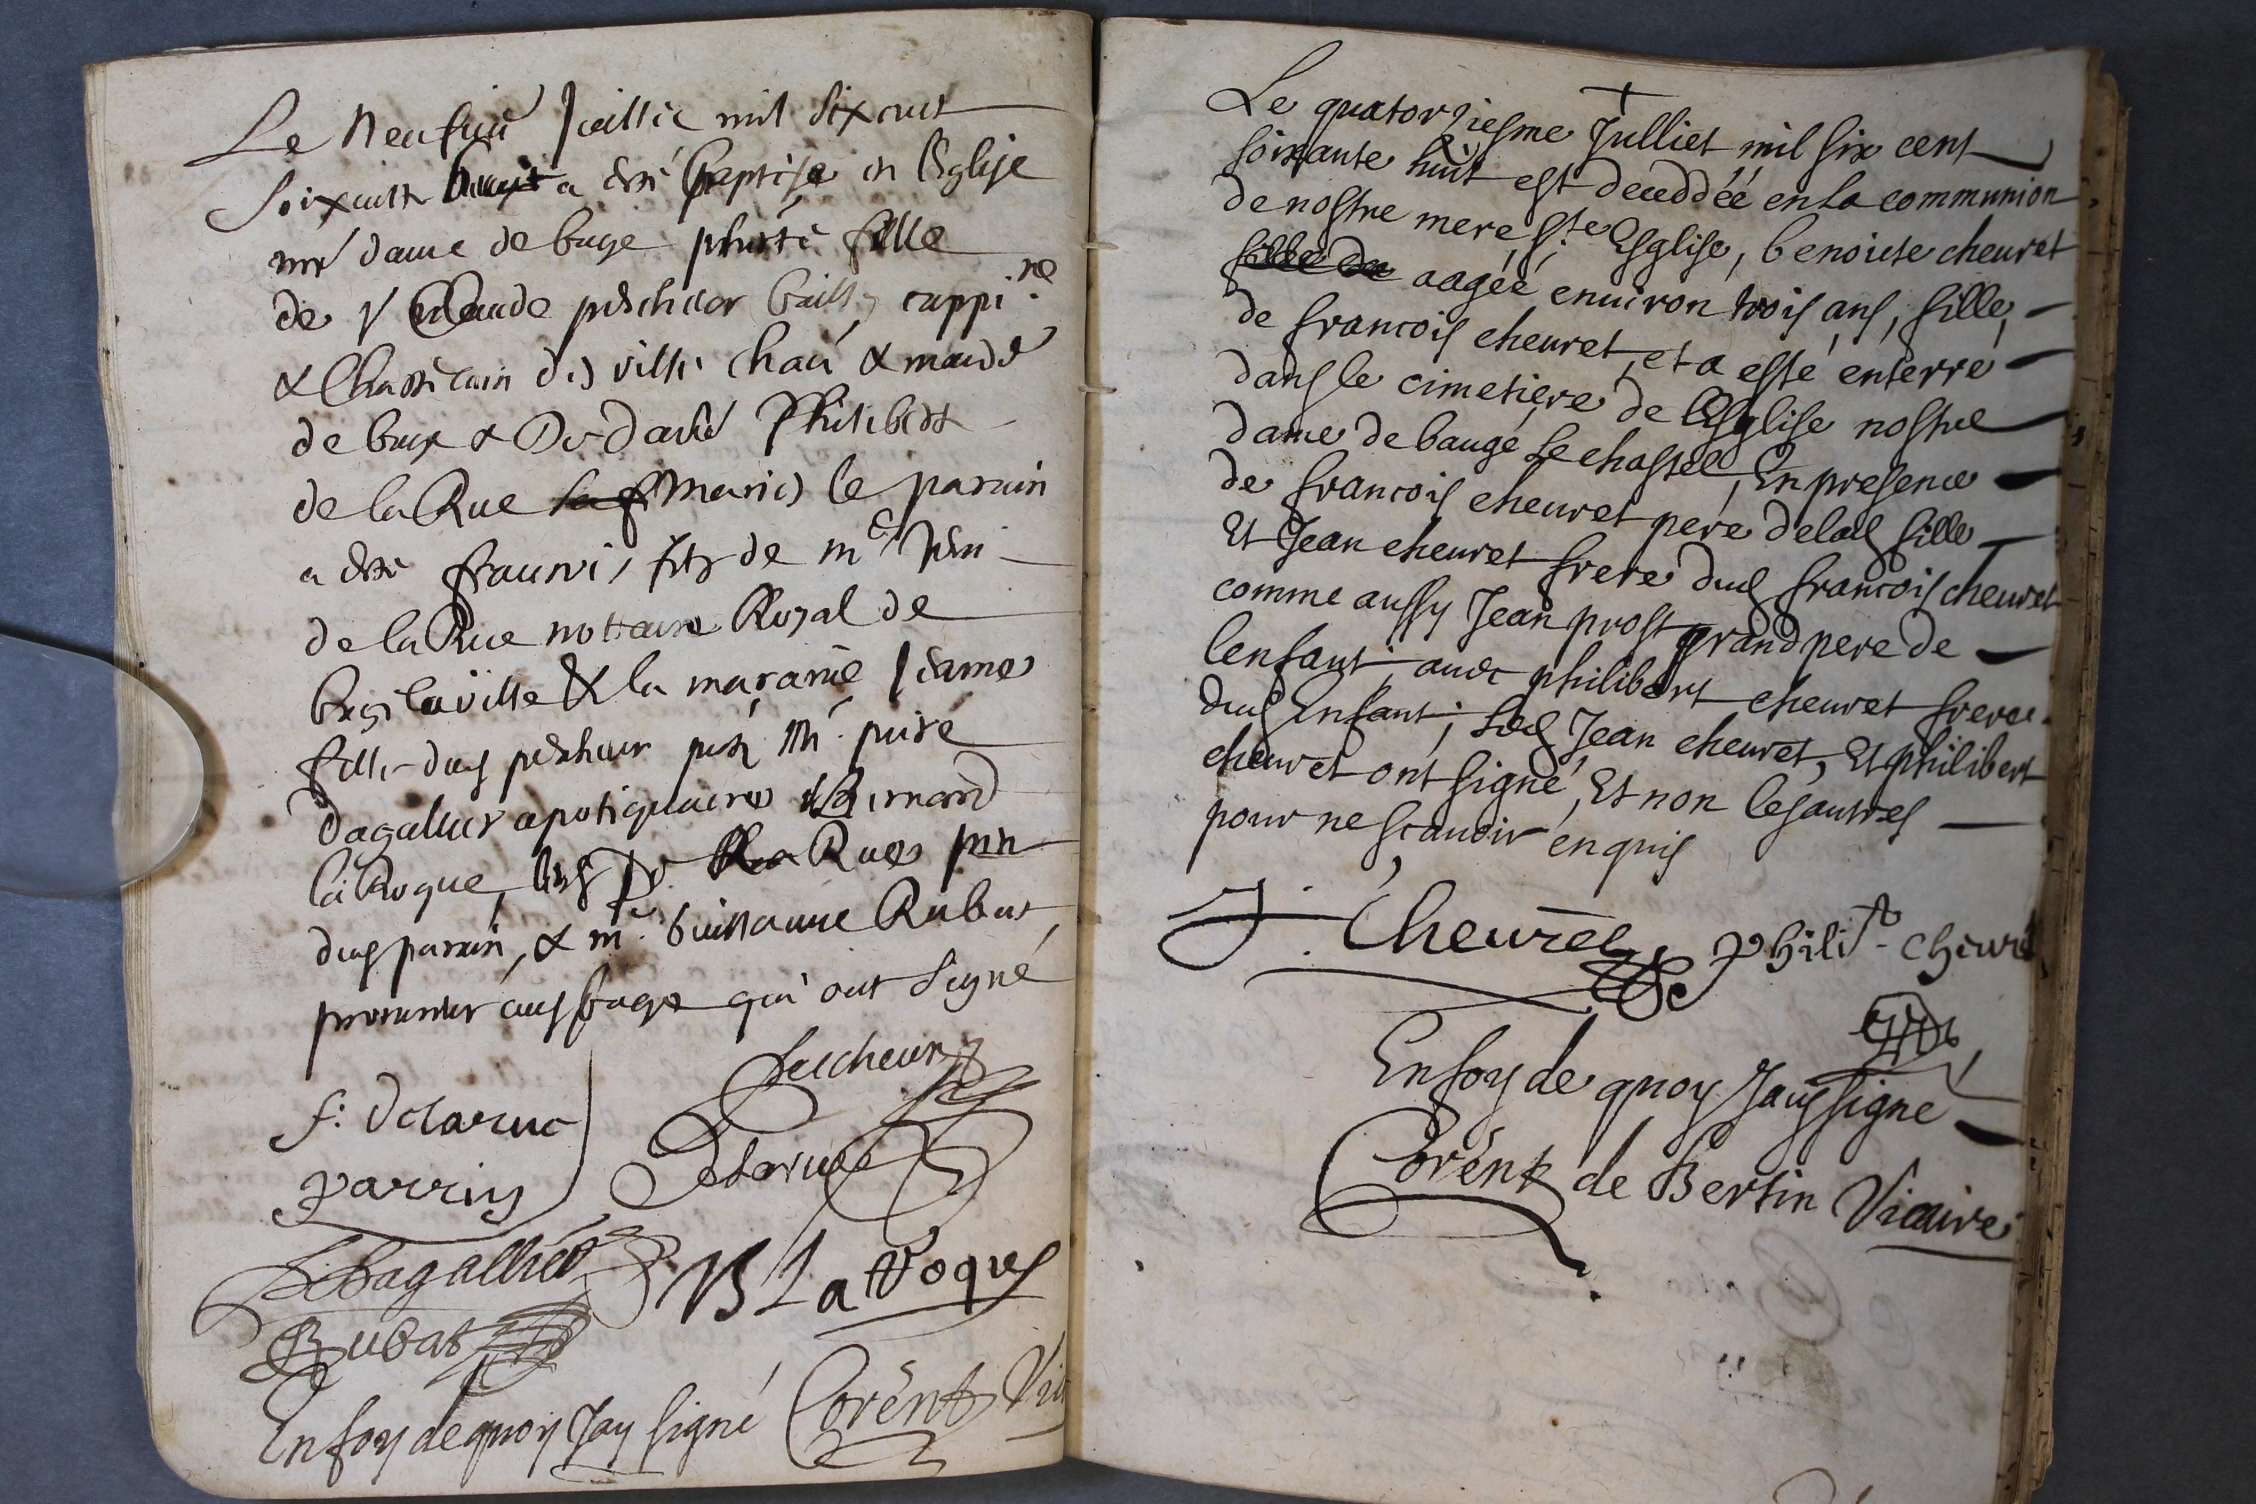 Le Neufvie Juillie mil six cent
soixante huict a esté baptisé en l'Eglise
nre dame de bage phiberte fille
de Sr Claude pescheur bailly cappi.ne
& Chastelain des ville chau & mandt
de bage & De dame Philiberte
de la Rue maries le parain
a esté francois, filz de me Jean
de la Rue nottaire Royal de
bagé la ville & la maraine Jeanne
fille dud pescheur pnt Me
dagallier apotiquaire Bernard
la Roque, de la Rue pere
dud parain, & me Guillaume Rubat
procureur aud bage qui ont signé
Pescheur
f: delarue
parrin
Delarue
Dagallier
B La Roque
Rubat
En foy de quoy Jay signé Corent Vic
Le quatorziesme Julliet mil six cent
soixante huit est deceddéé en la communion
de nostre mere, Ste Esglise, benoite cheuret
fille de aagéé enuiron trois ans, fille,
de francois cheuret, et a esté enterré
dans le cimetiere de l'Esglise nostre
dame de baugé le chastel, En presence
de francois cheuret pere de lad fille
Et Jean cheuret frere dud francois cheuret
comme aussy Jean prost grand pere de
lenfant, auec philibert cheuret frere
dud Enfant; led Jean cheuret, Et philibert
cheuret ont signé, Et non les autres
pour ne scauoir enquis
J. Cheuret Philit. cheuret
En foy de quoy Jay signe
Corent de Bertin Vicaire